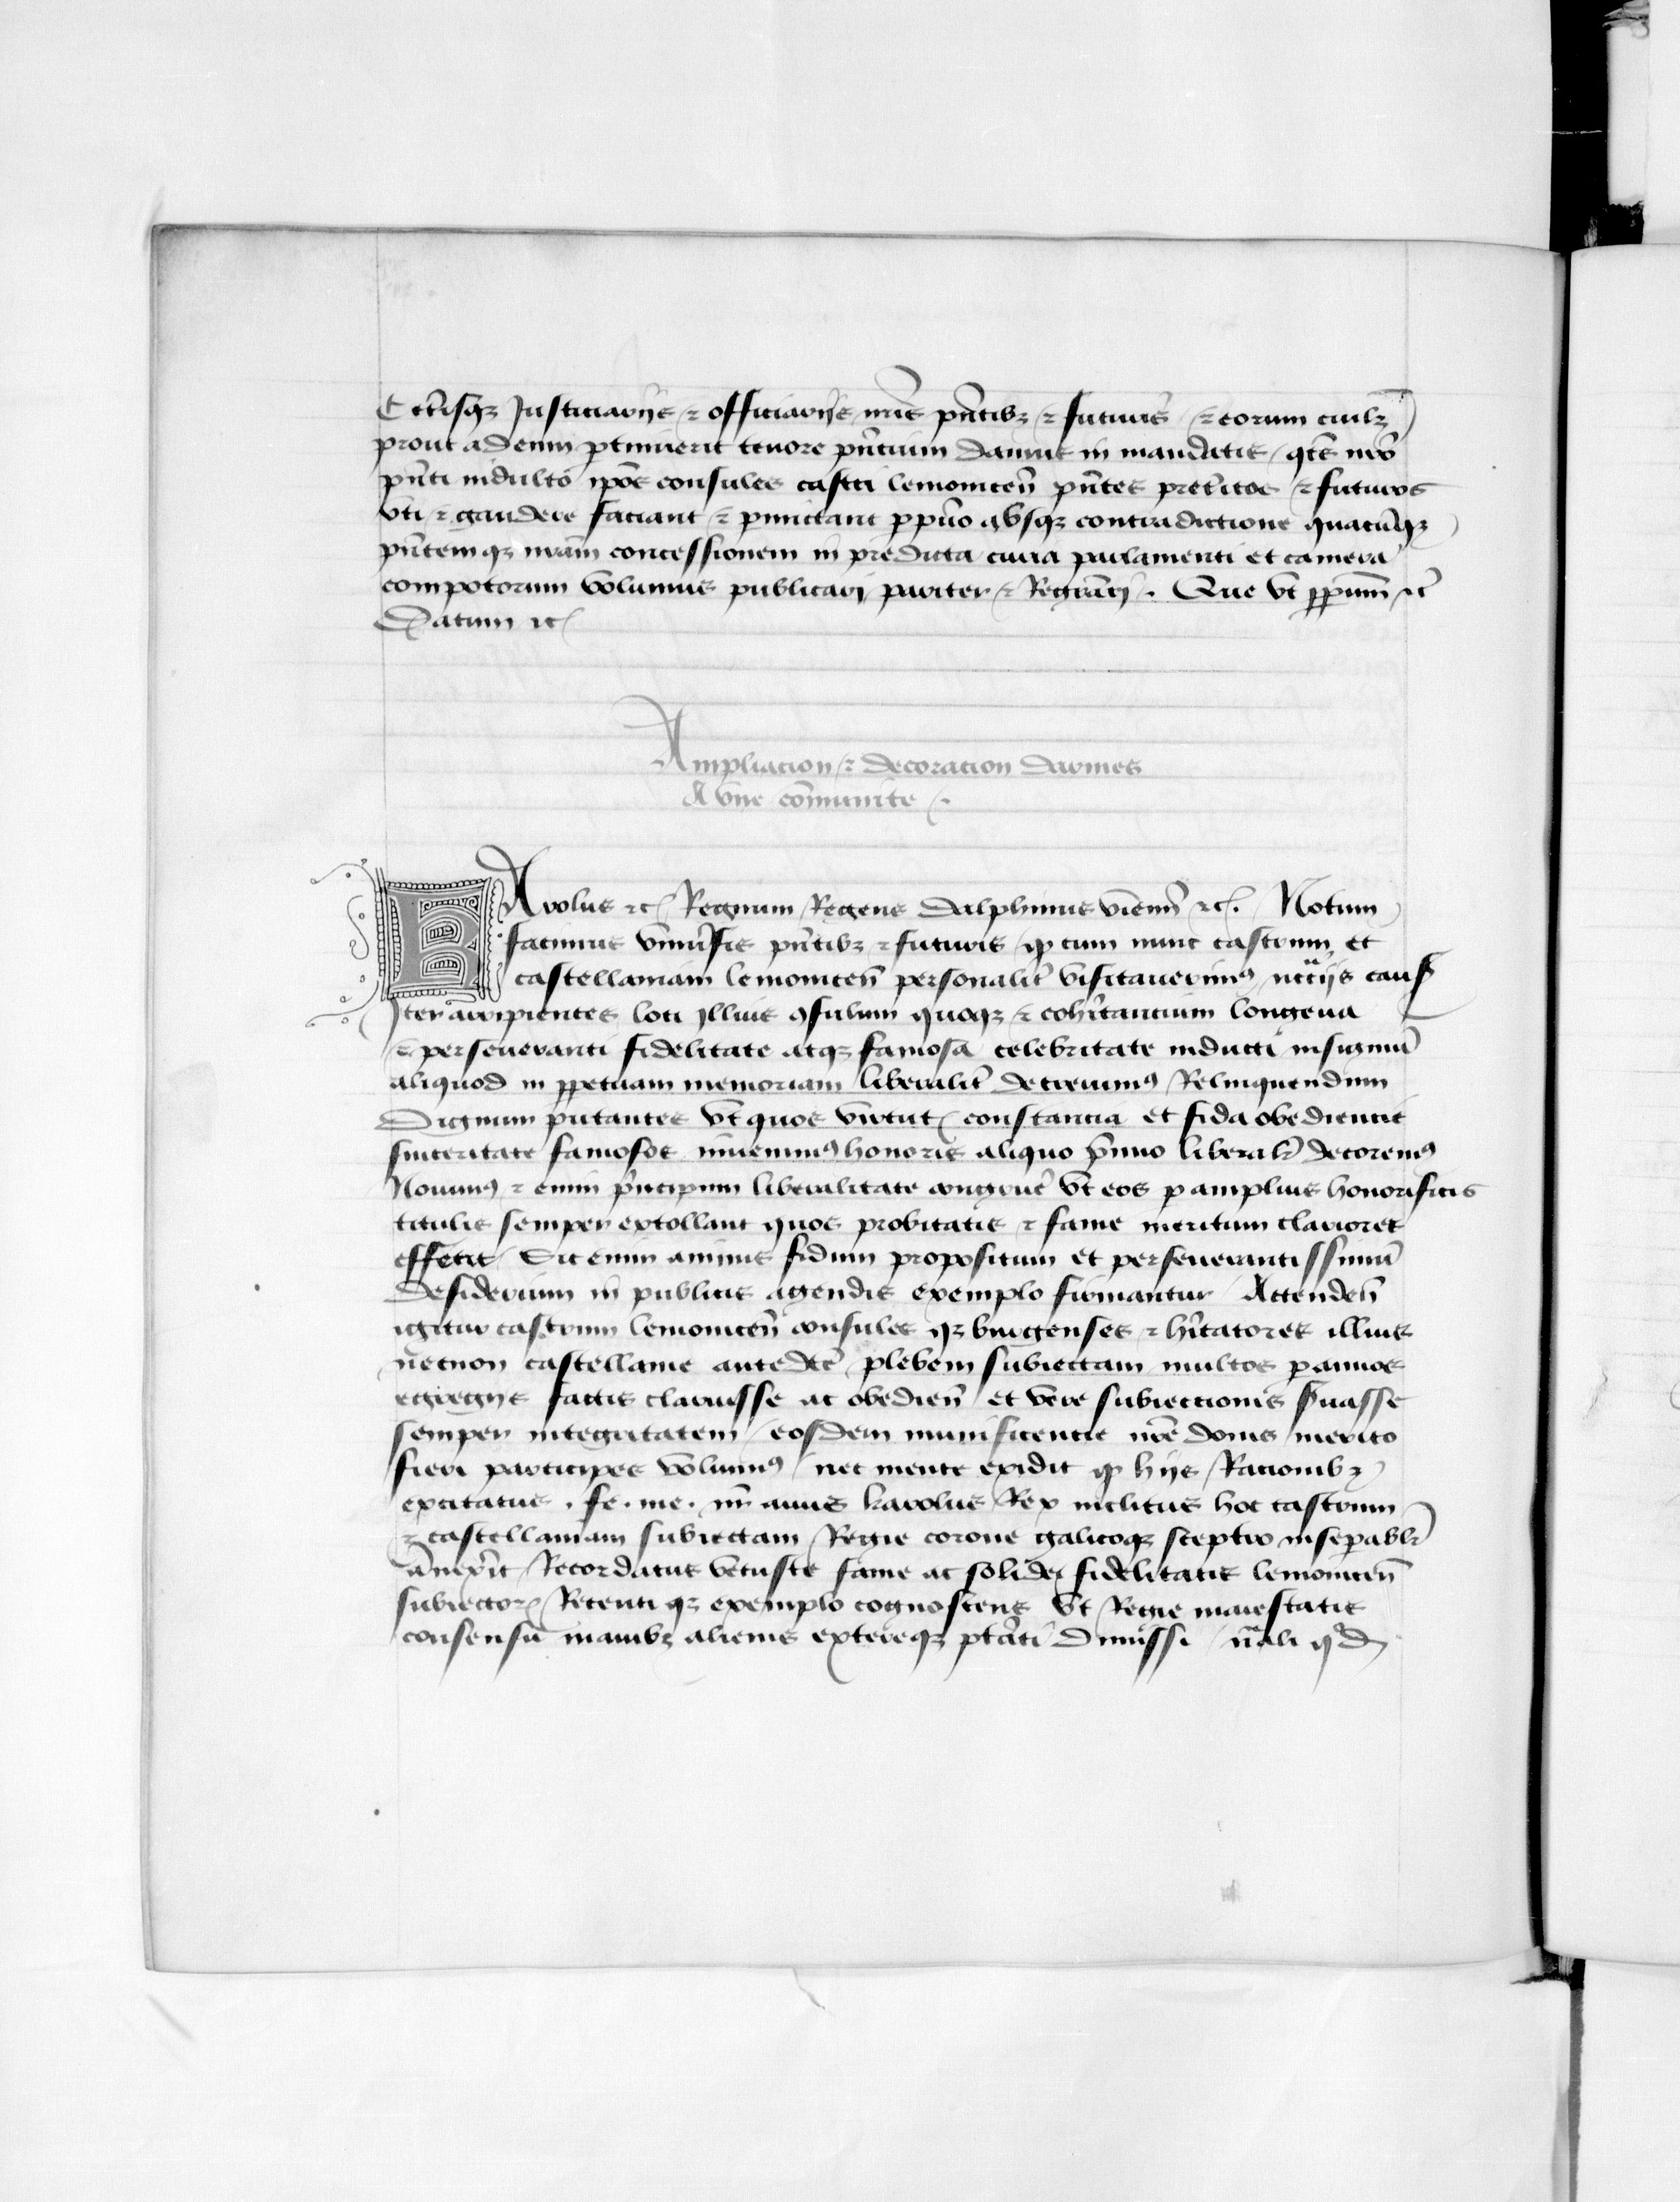 Ceterisqz Justiciarijs ⁊ officiarijs nris pntibz ⁊ futuris ⁊ eorum cuilz
prout ad eum ptinuerit tenore pntium damus in mandatis qts nro
pnti indulto ipos consules castri lemonicen pntes preteritos ⁊ futuros
vti ⁊ gaudere faciant ⁊ pmictant ppetuo absqz contradictione quacumqz
pntemqz nram concessionem in predicta curia parlamenti et camera
compotorum volumus publicari pariter ⁊ Registrarj . Que vt ppetuum ⁊c
Datum ⁊c
Ampliacion ⁊ decoracion darmes
A vne comunite .
KArolus ⁊c Regnum Regens dalphinus vienn ⁊c. Notum
facimus vniuersis pntibz ⁊ futuris qp cum nunc castrum et
castellaniam lemonicen personalit visitauerimus nccijs caus
Iter arripientes loci illius 9sulum quoqz ⁊ cohitantium longeua
⁊ perseueranti fidelitate atqz famosa celebritate inducti insigniu
aliquod in ppetuam memoriam liberalit decreuimus Relinquendum
Dignum putantes vt quos virtut constancia et fida obediencie
sinceritate famosos inuenimus honoris aliquo pmio liberalr decoremus
Nouimus ⁊ enim principum liberalitate congruere vt eos p amplius honorificis
titulis semper extollant quos probitatis ⁊ fame meritum clariores
effecit Sic enim animus fidum propositum et perseuerantissimu
desiderium in publicis agendis exemplo firmantur Attenden
igitur castrum lemonicen consules qz burgenses ⁊ hitatores illius
necnon castellanie antedce plebem subiectam multos p annos
egregijs factis claruisse ac obedien et vere subiectionis suasse
semper integritatem eosdem munificencie nre donis merito
fieri participes volumus nec mente excidit qp hijs Racionibz
excitatus . fe . me . nr auus karolus Rex inclitus hoc castrum
⁊ castellaniam subiectam Regie corone galicoqz sceptro insepablr
annexit Recordatus vetuste fame ac solide fidelitatis lemonicen
subiector Recenti qz exemplo cognoscens vt Regie maiestatis
consensu manibz alienis extereqz ptati dimissi nali qd